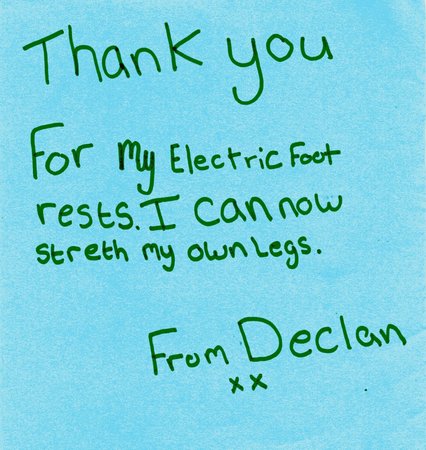 Thank you
For my Electric Foot
rests. I can now
streth my own Legs.
From Declan
xx